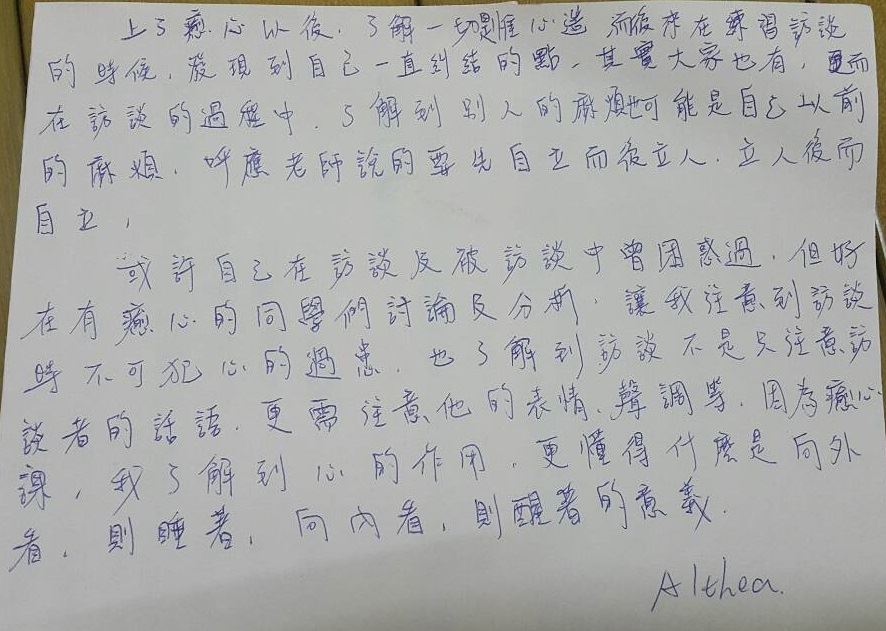 上了癒心以後，了解一切是唯心造，而後來在練習訪談
的時候，發現到自己一直糾結的點，其實大家也有，更而
在訪談的過程中，了解到別人的麻煩也可能是自己以前
的麻煩，呼應老師說的要先自立而後立人，立人後而
自立，
或許自己在訪談及被訪談中曾困惑過，但好
在有癒心的同學們討論及分析，讓我注意到訪談
時不可犯心的過患，也了解到訪談不是只注意訪
談者的話語，更需注意他的表情、聲調等，因為癒心
課，我了解到心的作用，更懂得什麼是向外
看，則睡著，向內看，則醒著的意義．
Althea.